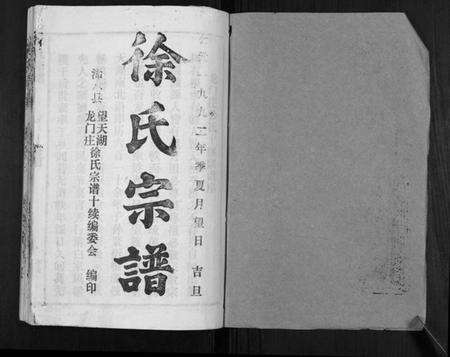 九九二年季夏月望日 吉旦
徐氏宗譜
县 望天湖
龙门庄 徐氏宗谱十续编委会 编印